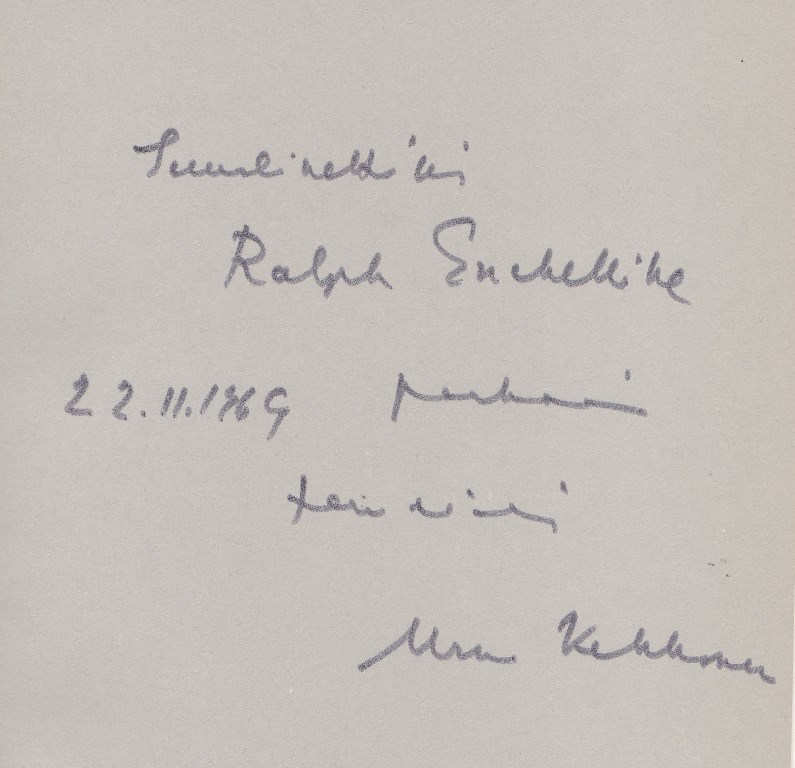 Suurlähettiläs
Ralph Enckellille
22.11.1969 parhain
terveisin
Urho Kekkonen